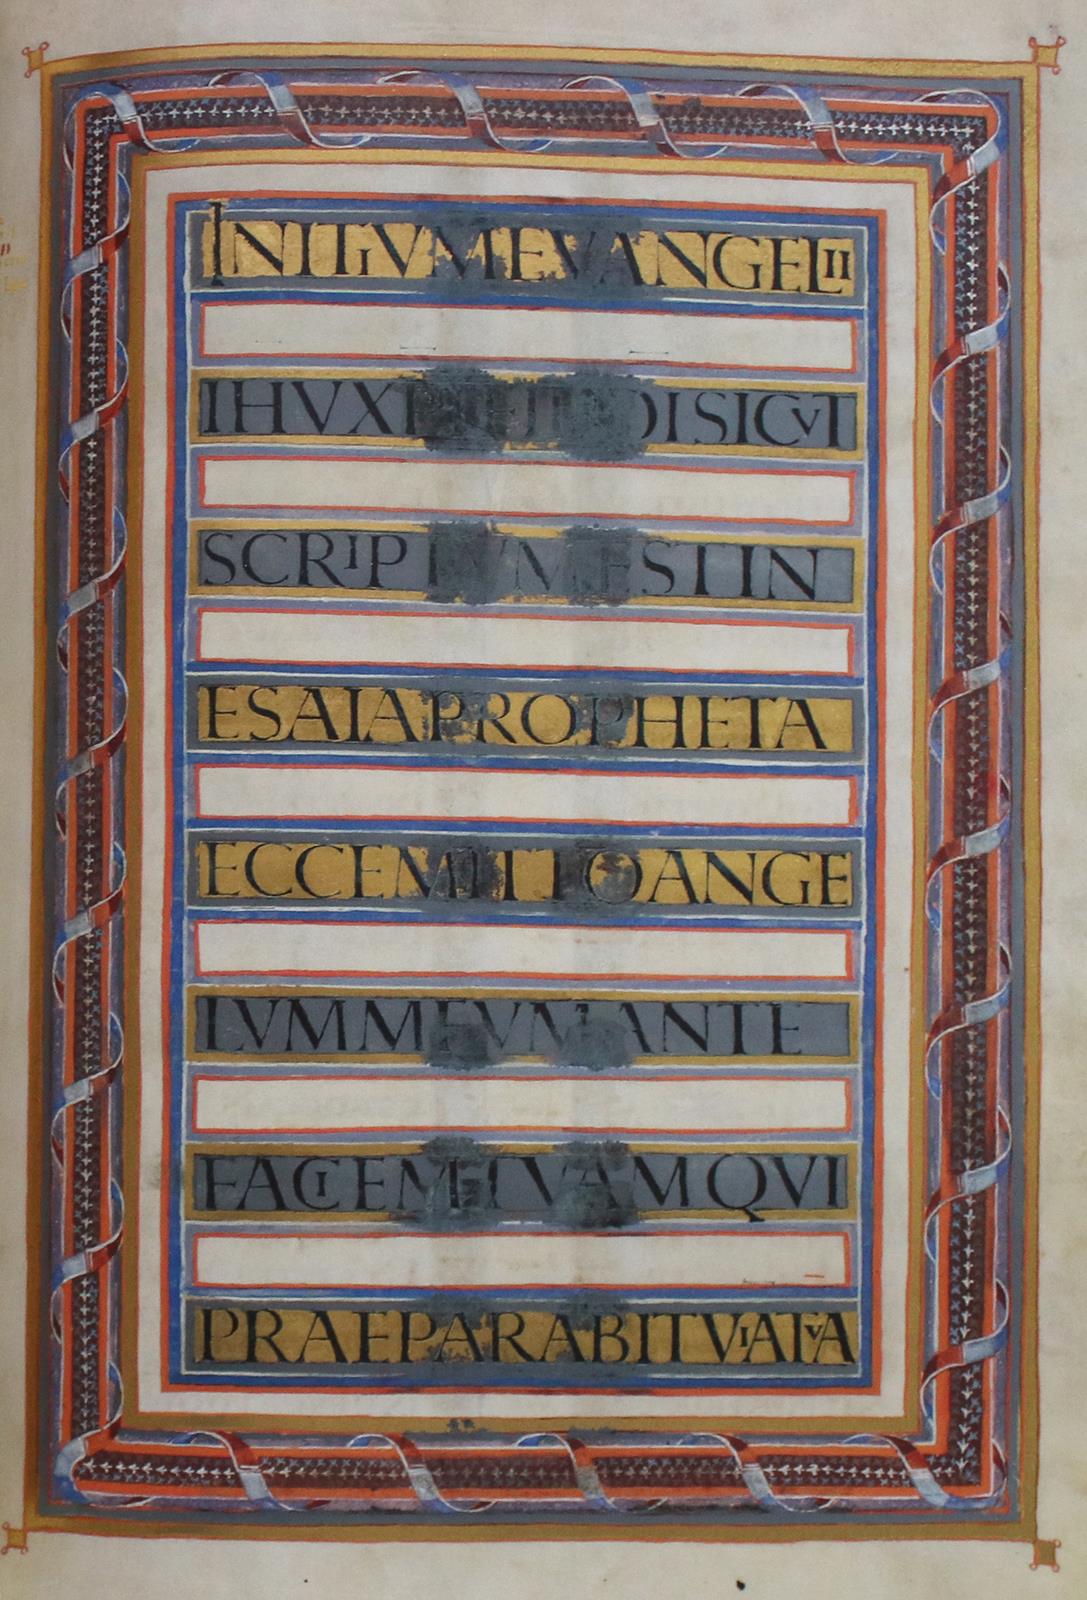 INITIVM EVANGELII
IHV DI SICVT
SCRIPTVM EST IN
ESAIA PROPHETA
ECCE MITTO ANGE
LVM MEVM ANTE
FACIEM TVAM QVI
PRAEPARABIT VIA TVA